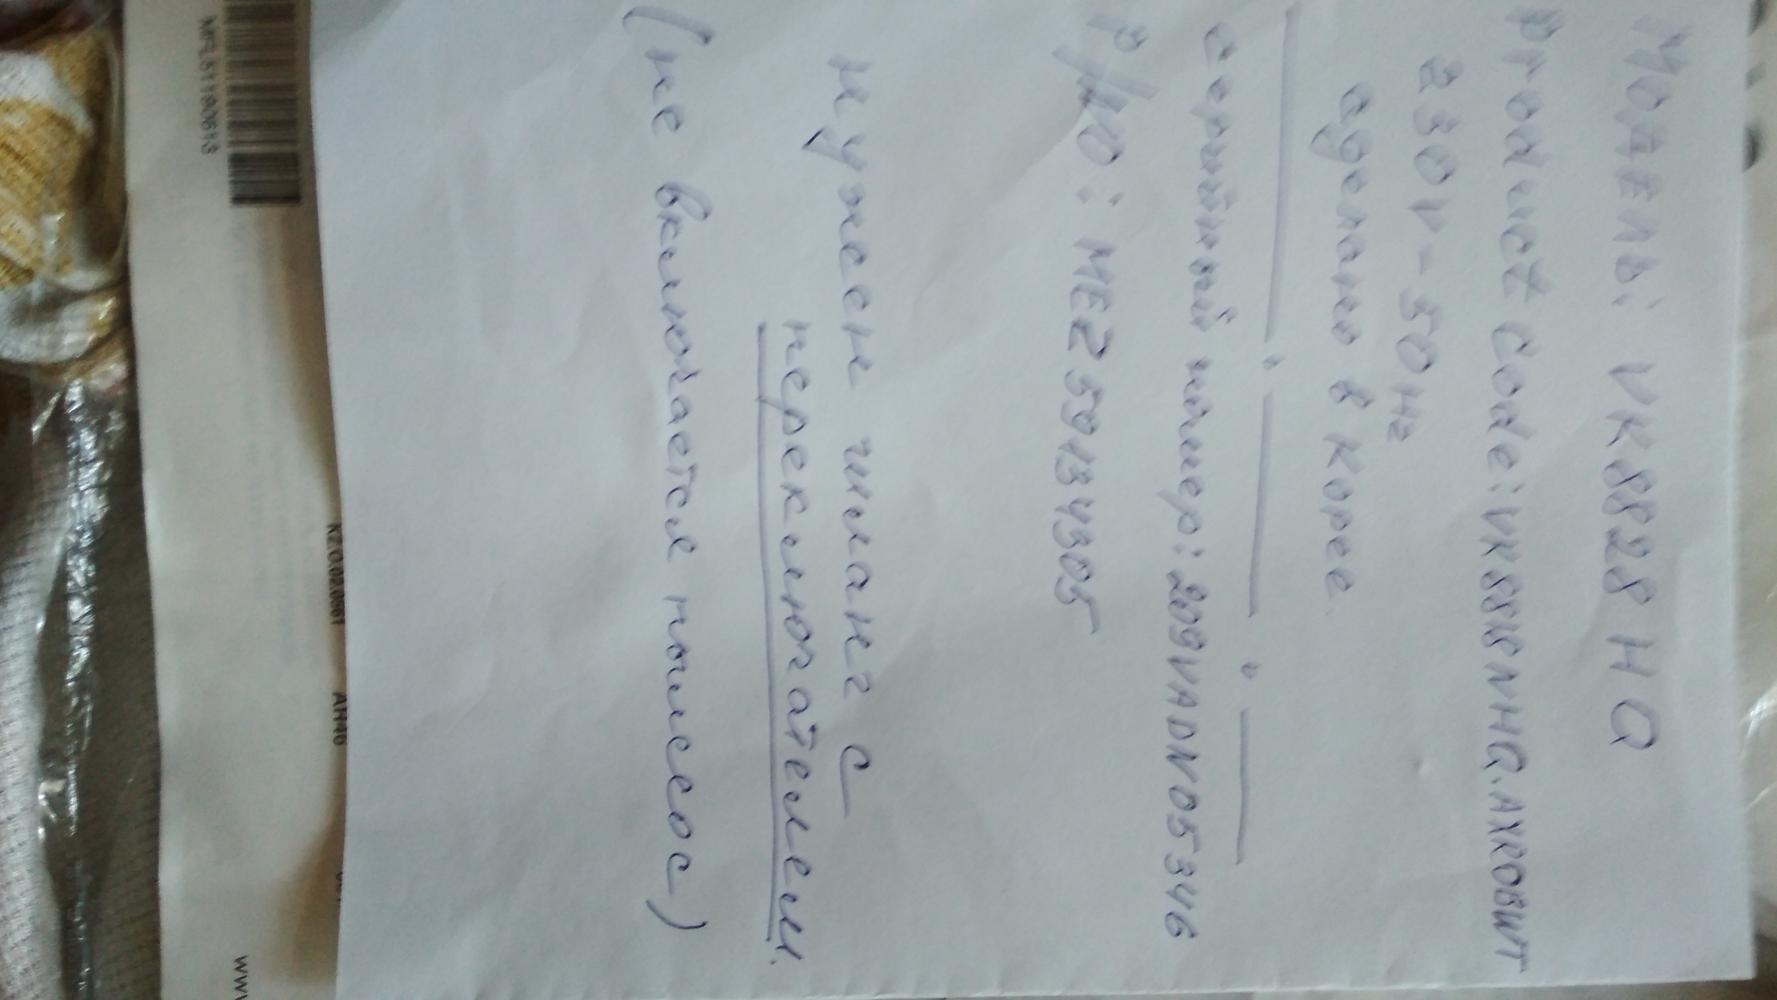 Модель: VK8828HQ
Product Code: VK8818NHQ.AXROBWT
230V-50Hz
сделано в Корее.
серийный номер: 209VADN05346
P/NO: MEZ59134305
Нужен шланг с
переключателем.
(не включается пылесос)
MFL51190613
K20.02.0561 AH46
www